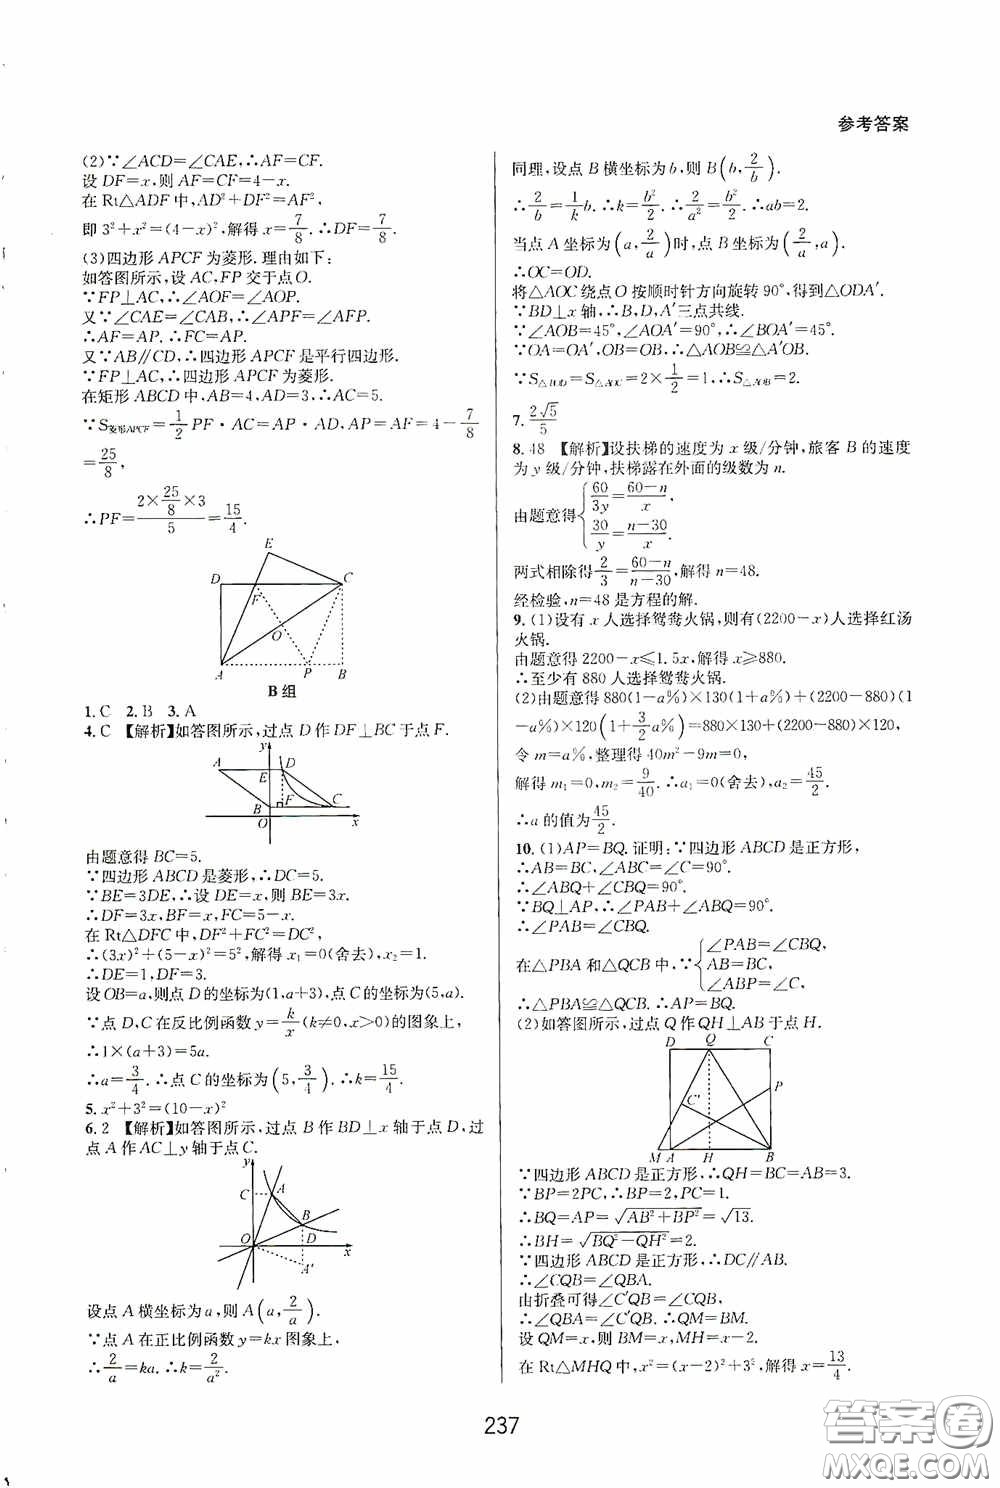 参考答案
(2)∵∠ACD=∠CAE,∴AF=CF.
设 DF=x,则 AF=CF=4-x.
在 Rt△ADF 中,AD²+DF²=AF²,
即 3²+x²=(4-x)²,解得 x=7/8.∴DF=7/8.
(3)四边形 APCF 为菱形.理由如下:
如答图所示,设 AC,FP 交于点 O.
∵FP⊥AC,∴∠AOF=∠AOP.
又∵∠CAE=∠CAB,∴∠APF=∠AFP.
∴AF=AP.∴FC=AP.
又∵AB∥CD,∴四边形 APCF 是平行四边形.
∵FP⊥AC,∴四边形 APCF 为菱形.
在矩形 ABCD 中,AB=4,AD=3,∴AC=5.
∵S菱形APCF=1/2 PF·AC=AP·AD,AP=AF=4-7/8
=25/8,
∴PF=(2×25/8×3)/5=15/4.
E
D
C
F
O
A
P
B
B 组
1.C 2.B 3.A
4.C 【解析】如答图所示,过点 D 作 DF⊥BC 于点 F.
y
A
E
D
B
F
C
O
x
由题意得 BC=5.
∵四边形 ABCD 是菱形,∴DC=5.
∵BE=3DE,∴设 DE=x,则 BE=3x.
∴DF=3x,BF=x,FC=5-x.
在 Rt△DFC 中,DF²+FC²=DC²,
∴(3x)²+(5-x)²=5²,解得 x₁=0(舍去),x₂=1.
∴DE=1,DF=3.
设 OB=a,则点 D 的坐标为(1,a+3),点 C 的坐标为(5,a).
∵点 D,C 在反比例函数 y=k/x(k≠0,x>0)的图象上,
∴1×(a+3)=5a.
∴a=3/4.∴点 C 的坐标为(5,3/4).∴k=15/4.
5.x²+3²=(10-x)²
6.2 【解析】如答图所示,过点 B 作 BD⊥x 轴于点 D,过
点 A 作 AC⊥y 轴于点 C.
y
C
A
B
O
D
x
A′
设点 A 横坐标为 a,则 A(a,2/a).
∵点 A 在正比例函数 y=kx 图象上,
∴2/a=ka.∴k=2/a².
同理,设点 B 横坐标为 b,则 B(b,2/b).
∴2/b=1/k b.∴k=b²/2.∴2/a²=b²/2.∴ab=2.
当点 A 坐标为(a,2/a)时,点 B 坐标为(2/a,a).
∴OC=OD.
将△AOC 绕点 O 按顺时针方向旋转 90°,得到△ODA′.
∵BD⊥x 轴,∴B,D,A′三点共线.
∵∠AOB=45°,∠AOA′=90°,∴∠BOA′=45°.
∵OA=OA′,OB=OB,∴△AOB≌△A′OB.
∵S△BOD=S△AOC=2×1/2=1,∴S△AOB=2.
7.2√5/5
8.48 【解析】设扶梯的速度为 x 级/分钟,旅客 B 的速度
为 y 级/分钟,扶梯露在外面的级数为 n.
由题意得{60/3y=(60-n)/x, 30/y=(n-30)/x.
两式相除得2/3=(60-n)/(n-30),解得 n=48.
经检验,n=48 是方程的解.
9.(1)设有 x 人选择鸳鸯火锅,则有(2200-x)人选择红汤
火锅.
由题意得 2200-x≤1.5x,解得 x≥880.
∴至少有 880 人选择鸳鸯火锅.
(2)由题意得 880(1-a%)×130(1+a%)+(2200-880)(1
-a%)×120(1+3/2 a%)=880×130+(2200-880)×120,
令 m=a%,整理得 40m²-9m=0,
解得 m₁=0,m₂=9/40.∴a₁=0(舍去),a₂=45/2.
∴a 的值为45/2.
10.(1)AP=BQ.证明:∵四边形 ABCD 是正方形,
∴AB=BC,∠ABC=∠C=90°.
∴∠ABQ+∠CBQ=90°.
∵BQ⊥AP,∴∠PAB+∠ABQ=90°.
∴∠PAB=∠CBQ.
在△PBA 和△QCB 中,∵{∠PAB=∠CBQ, AB=BC, ∠ABP=∠C,
∴△PBA≌△QCB.∴AP=BQ.
(2)如答图所示,过点 Q 作 QH⊥AB 于点 H.
D
Q
C
P
C′
M
A
H
B
∵四边形 ABCD 是正方形,∴QH=BC=AB=3.
∵BP=2PC,∴BP=2,PC=1.
∴BQ=AP=√(AB²+BP²)=√13.
∴BH=√(BQ²-QH²)=2.
∵四边形 ABCD 是正方形,∴DC∥AB.
∴∠CQB=∠QBA.
由折叠可得∠C′QB=∠CQB,
∴∠QBA=∠C′QB.∴QM=BM.
设 QM=x,则 BM=x,MH=x-2.
在 Rt△MHQ 中,x²=(x-2)²+3²,解得 x=13/4.
237
答案卷
MXQE.COM